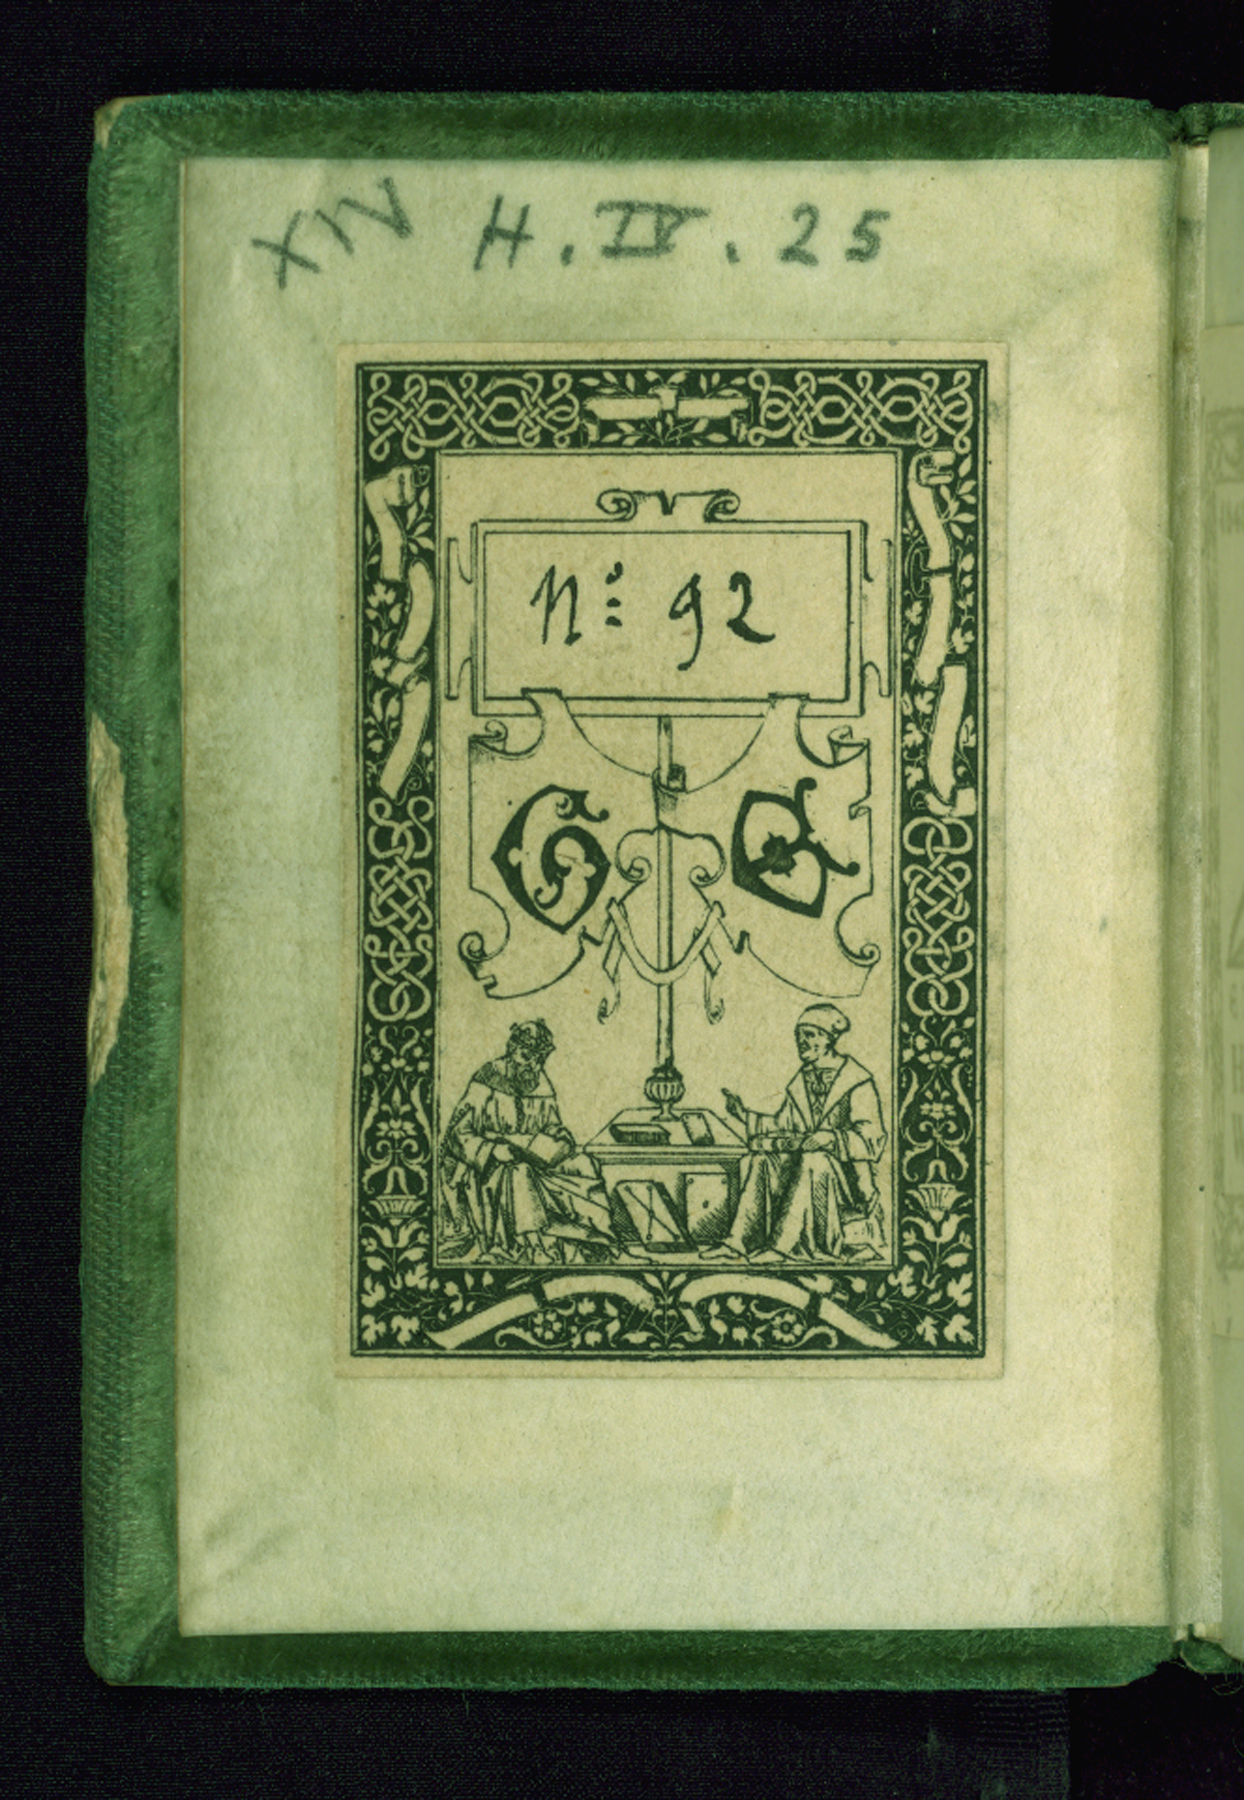 XIV H. IV. 25
Nº 92
G B